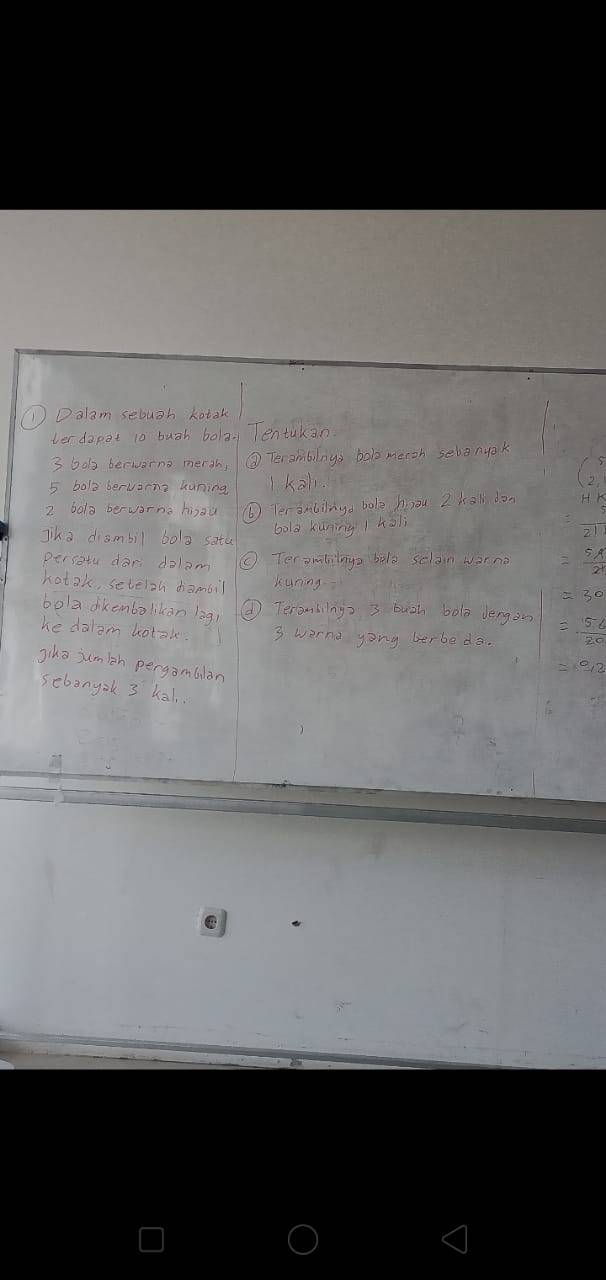 ① Dalam sebuah kotak
terdapat 10 buah bola.
3 bola berwarna merah,
5 bola berwarna kuning
2 bola berwarna hijau
Jika diambil bola satu
Persatu dari dalam
kotak, setelah diambil
bola dikembalikan lagi
ke dalam kotak.
Jika jumlah pengambilan
sebanyak 3 kali.
Tentukan.
ⓐ Terambilnya bola merah sebanyak
1 kali.
ⓑ Terambilnya bola hijau 2 kali dan
bola kuning 1 kali
ⓒ Terambilnya bola selain warna
kuning.
ⓓ Terambilnya 3 buah bola dengan
3 warna yang berbeda.
= 30